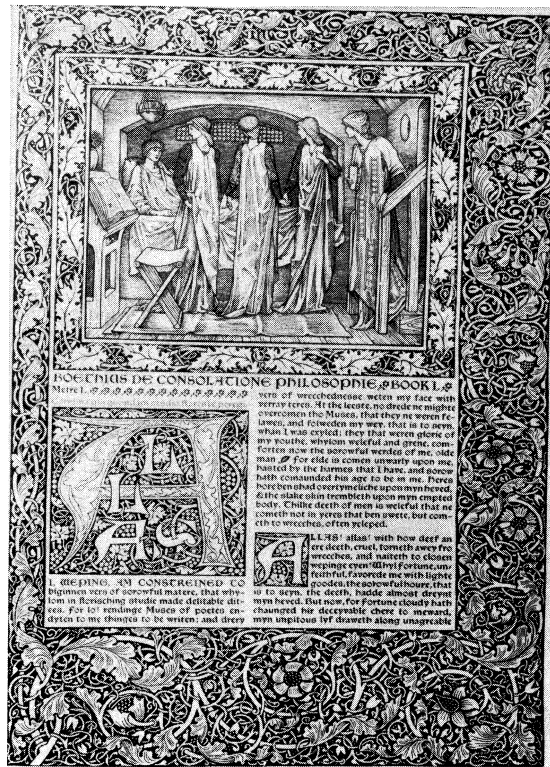 BOETHIUS DE CONSOLATIONE PHILOSOPHIE. BOOK I.
Metre I.
ALLAS
I, WEPING, AM CONSTREINED TO
biginnen vers of sorowful matere, that why-
lom in florisching studie made delitable dit-
ees. For lo! rendinge Muses of poetes en-
dyten to me thinges to be writen; and drery
vers of wrecchednesse weten my face with
verray teres. At the leeste, no drede ne mighte
overcomen tho Muses, that they ne weren fe-
lawes, and folweden my wey, that is to seyn,
whan I was exyled; they that weren glorie of
my youthe, whylom weleful and grene, com-
forten now the sorowful werdes of me, olde
man. for elde is comen unwarly upon me,
hasted by the harmes that I have, and sorow
hath comaunded his age to be in me. Heres
hore ben shad overtymeliche upon myn heved,
& the slake skin trembleth upon myn empted
body. Thilke deeth of men is weleful that ne
cometh not in yeres that ben swete, but com-
eth to wrecches, often yeleped.
ALLAS! allas! with how deef an
ere deeth, cruel, torneth awey fro
wrecches, and naiteth to closen
wepinge eyen! Whyl fortune, un-
feithful, favorede me with lighte
goodes, the sorowful houre, that
is to seyn, the deeth, hadde almost dreynt
myn heved. But now, for fortune cloudy hath
chaunged hir deceyvable chere to meward,
myn unpitous lyf draweth along unagreable